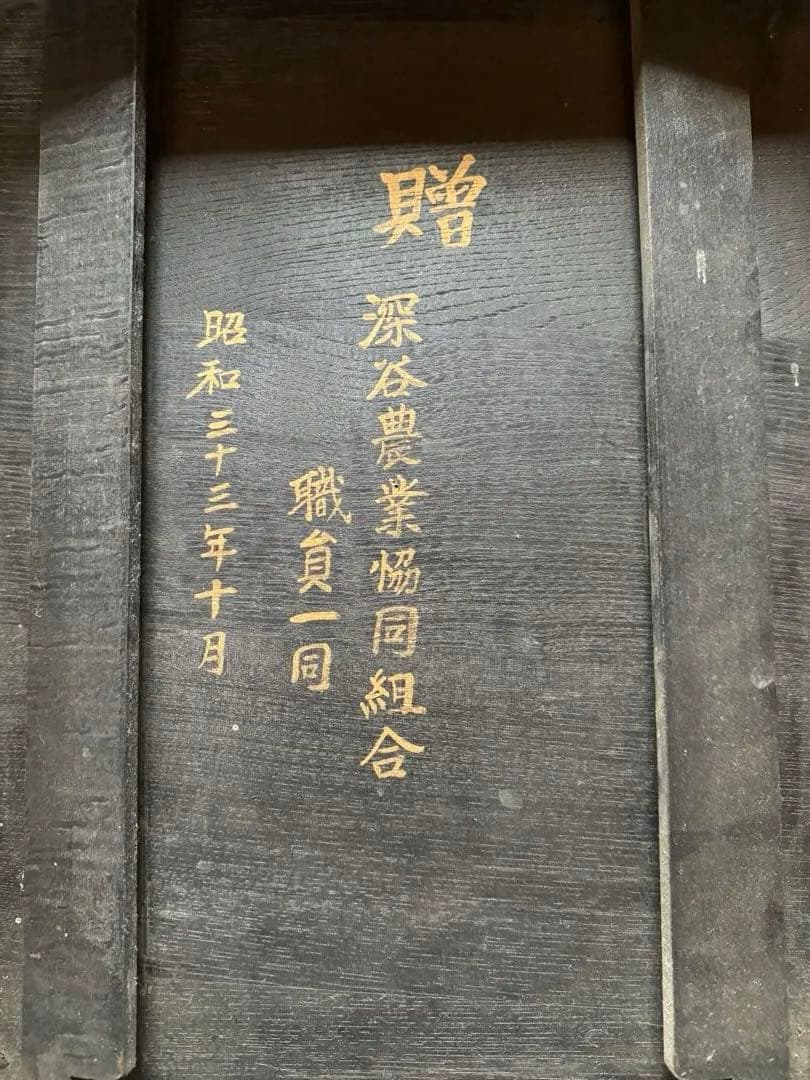 贈
深谷農業協同組合
職員一同
昭和三十三年十月